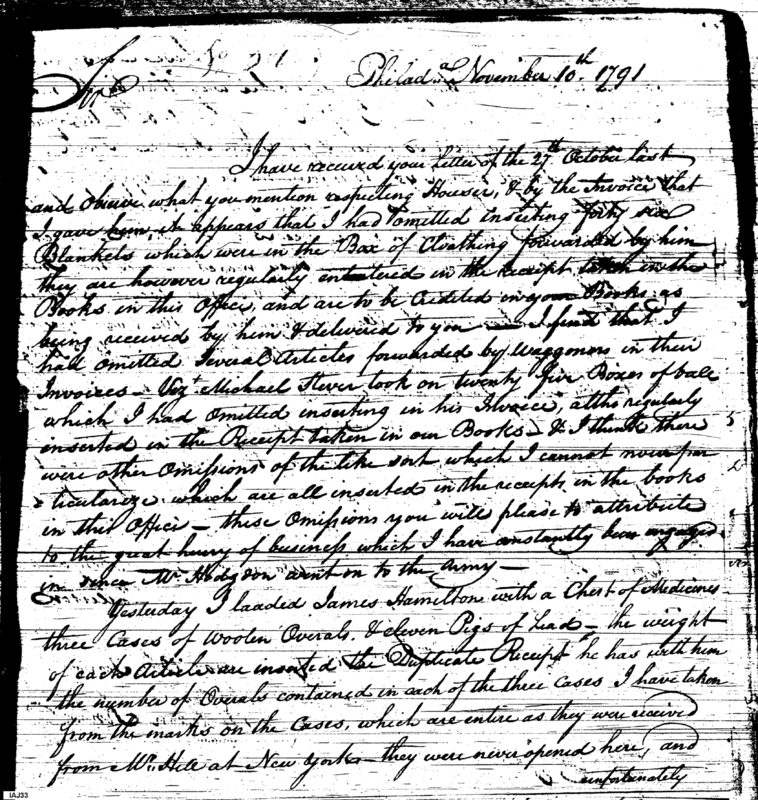 Philad.a November 10th. 1791
Sir
I have received your letter of the 27th October last
and observe what you mention respecting Houser, & by the Invoice that
I gave him, it appears that I had omitted inserting forty six
Blankets which were in the Box of Cloathing forwarded by him
they are however regularly entered in the receipt taken in the
Books in this Office, and are to be Credited in your Books as
being received by him & delivered to you — I find that I
had omitted several Articles forwarded by Waggoners in their
Invoices — Vizt Michael Stever took on twenty five Boxes of ball
which I had omitted inserting in his Invoice, altho regularly
inserted in the Receipt taken in our Books — & I think there
were other Omissions of the like sort which I cannot now par
ticularize which are all inserted in the receipts in the books
in this Office — these Omissions you will please to attribute
to the great hurry of business which I have constantly been engaged
in since Mr. Hodgson went on to the Army —
Yesterday I loaded James Hamilton with a Chest of Medicines
three Cases of Woolen Overals. & eleven Pigs of Lead — the weight
of each Article are inserted the Duplicate Receipt he has with him
the number of Overals contained in each of the three Cases I have taken
from the marks on the Cases, which are entire as they were received
from Mr. Hill at New York — they were never opened here, and
unfortunately
IAJ33